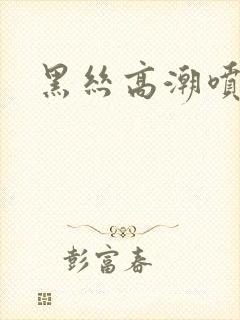 黑丝高潮喷
彭富春